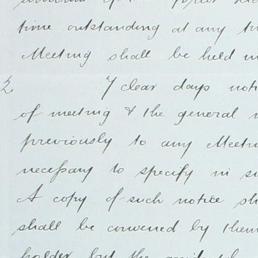 time outstanding at any
Meeting shall be held
2. 7 clear days
of meeting & the general
previously to any
necessary to specify in
A copy of such notice
shall be convened by
holder but the